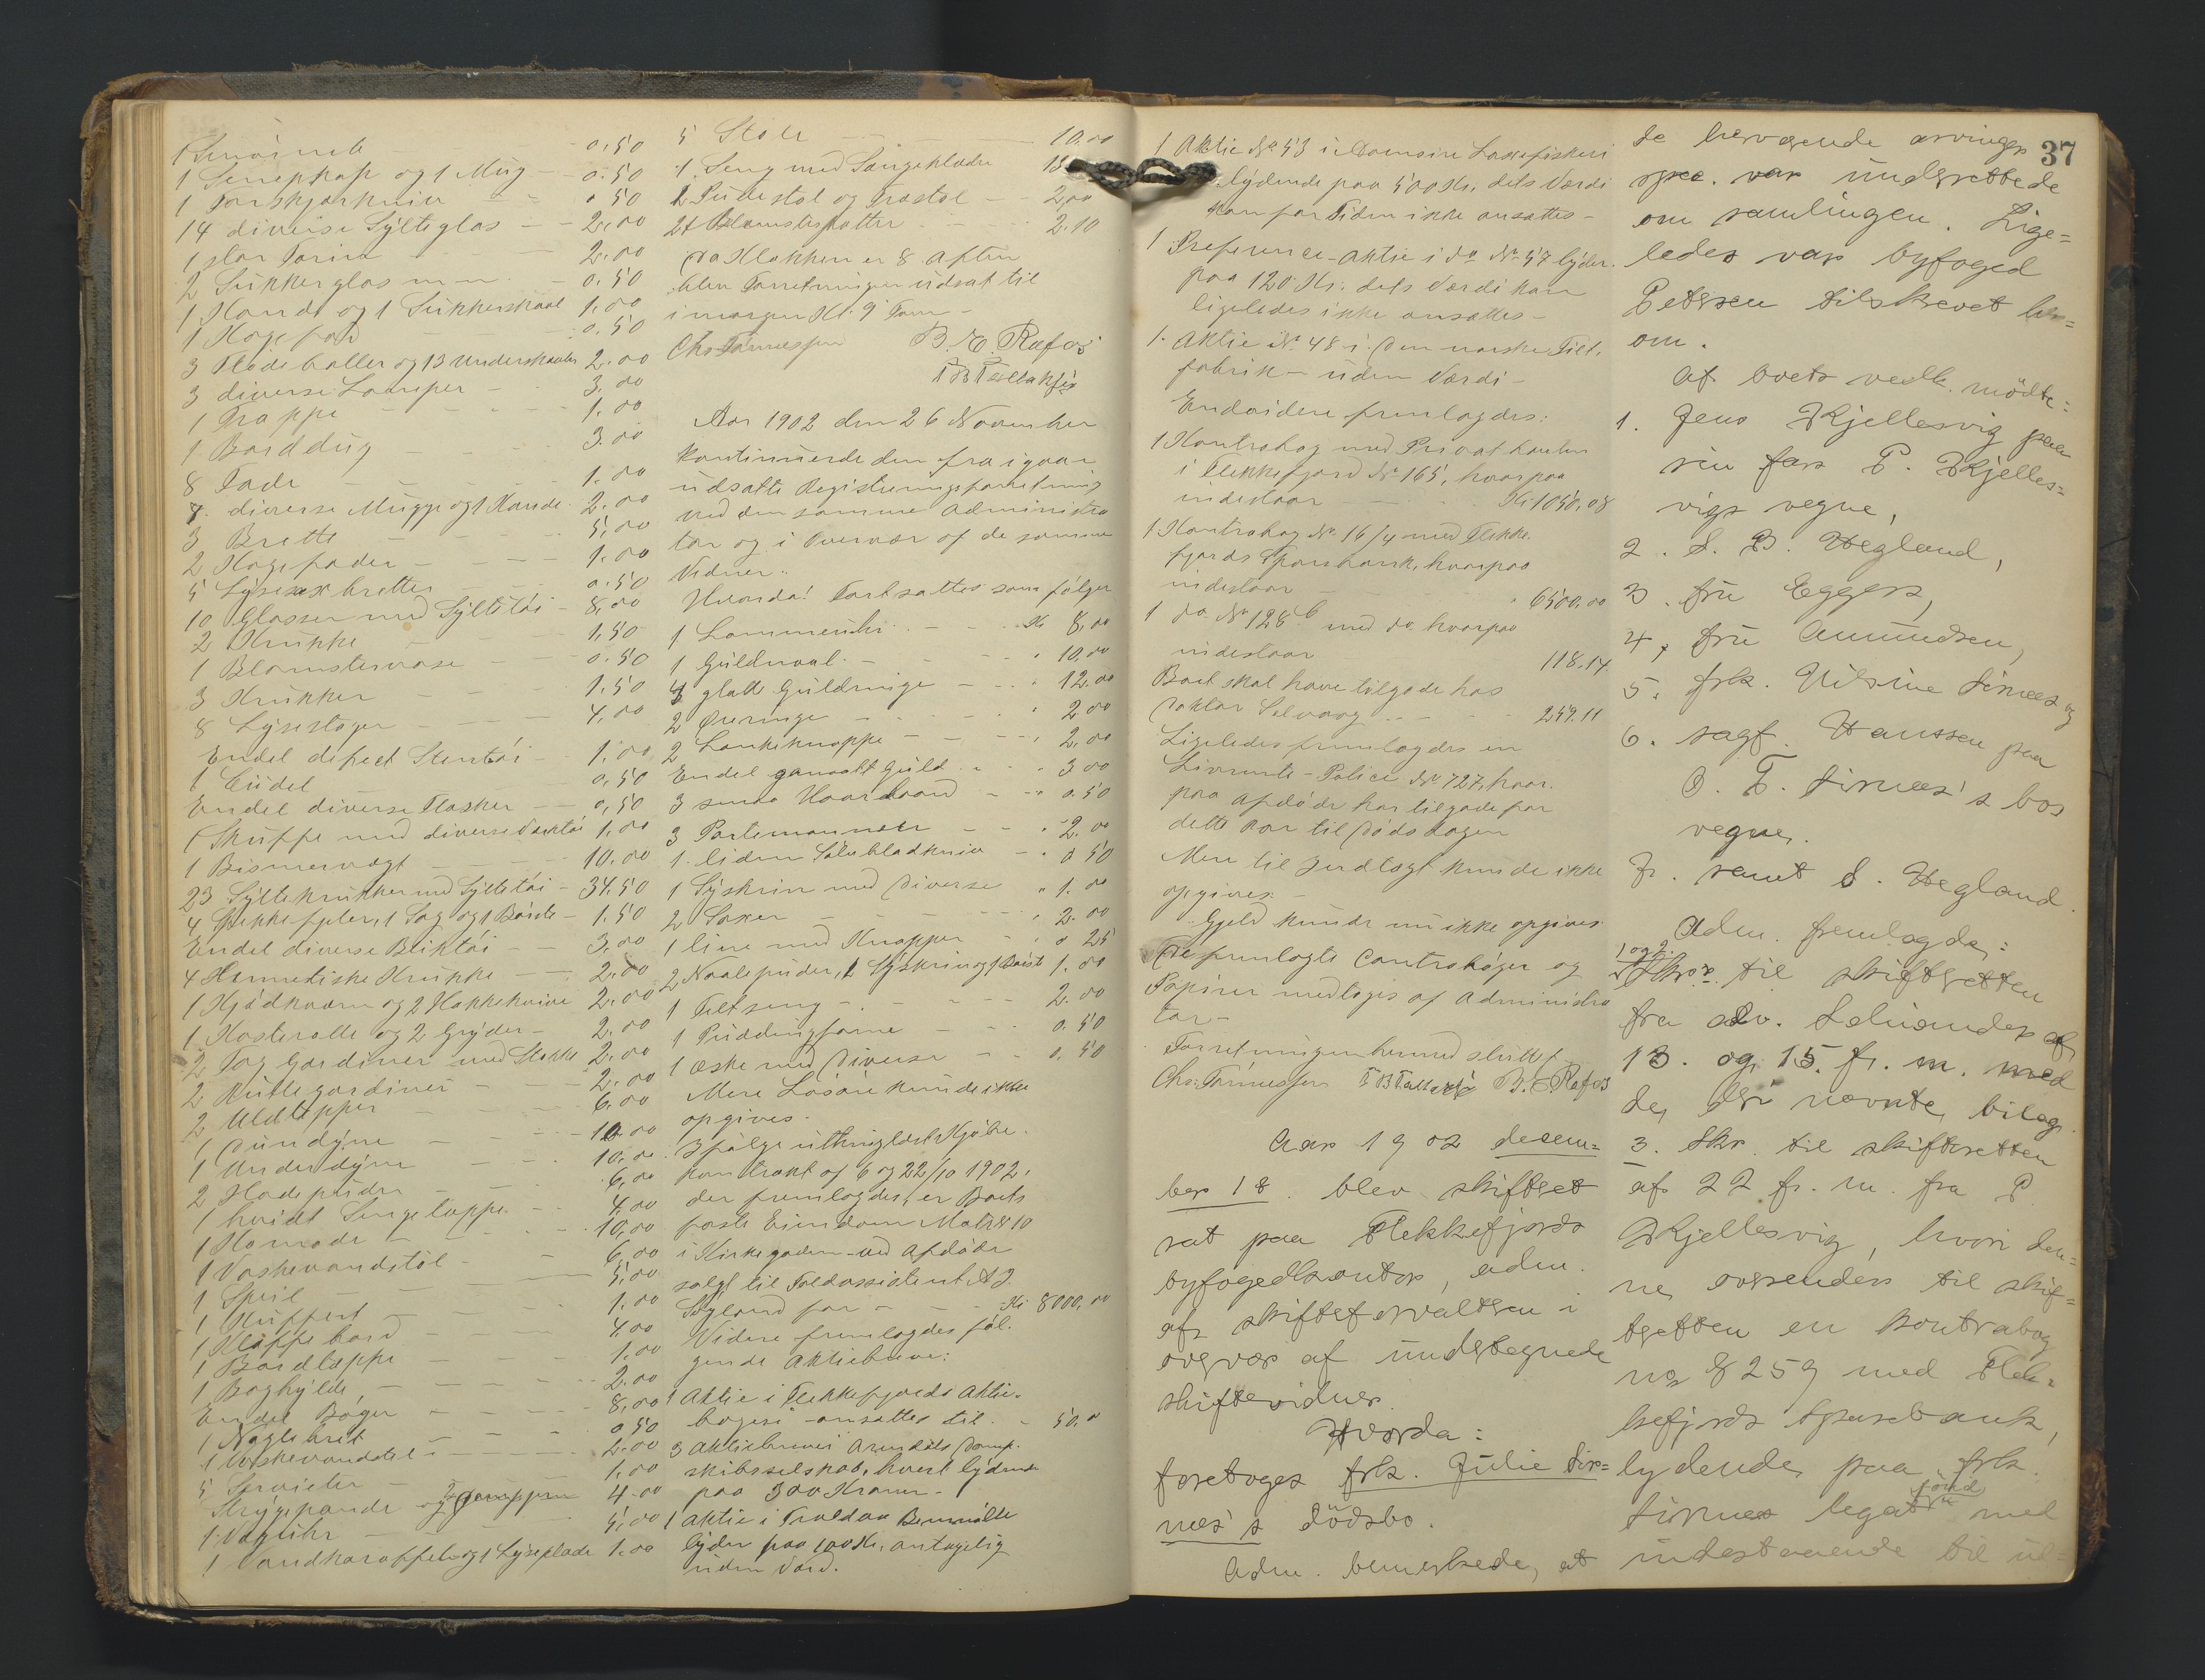 1 - 0,50
1 Senepskop og 1 Mug - 0.50
1 Forskjærkniv - 0 50
14 diverse Sylteglas - 2.00
1 stor Terin 2.00
2 Sukkerglas m m 0.50
1 Kande og 1 Sukkerskaal 1.00
1 Kagefad 0.50
3 Flødeboller og 13 Underskaaler 2.00
3 diverse Lamper - 3.00
1 Trappe 1.00
1 Borddug 3.00
8 Fade 1.00
7. diverse Mugge og 1 Kande 2.00
3 Brette 5,00
2 Kagefader 1.00
5 Lyse bretter 0.50
10 Glasser med Syltetöi - 8,00
2 Krukke 1,50
1 Blomstervase 0.50
3 Krukker 1.50
8 Lysestager 4,00
Endel defect Stentöi 1.00
1 0,50
Endel diverse Flasker 0,50
1 Skuffe med diverse 1,00
1 Bismervægt 10.00
23 Syltekrukker med Syltetöi - 34.50
4 1 Sag og 1 Börste - 1.50
Endel diverse Bliktöi 3,00
4 Hermetiske Krukke 2.00
1 Kjödkværn og 2 Hakkeknive 2.00
1 Kasterolle og 2 Gryder 2.00
2 Fag Gardiner med Stokke 2.00
2 Rullegardiner 2.00
2 Uldtepper 6.00
1 Dundyne 10.00
1 Underdyne 10.00
2 Hodepuder 6,00
1 hvidt Sengeteppe 4,00
1 Komode 10,00
1 Vaskevandstol 6,00
1 Speil 5,00
1 Kuffert 1.00
1 Klappebord 4,00
1 Bordteppe 1.00
1 Boghylde, 2.00
Endel Böger 8,00
1 0,50
1 Vaskevandstel 2.00
5 Servietter 1,00
Strygepande og 4.00
1 Vægtuhr 5,00
1 Vandkaraffel og 1 Lyseplade 1.00
5 Stole 10.00
1. Seng med Sengeklæder 15
1 Pudestol og Træstol - 2,00
21 Blomsterpotter 2.10
Da Klokken er 8 Aften
blev Forretningen udsat til
imorgen Kl. 9 Form -
Chr. Tönnessen B. E. Rafos
T B Tallaksen
Aar 1902 den 26 November
kontinuerede den fra igaar
udsatte Registreringsforretning
ved den samme Administra
tor og i Overvær af de samme
Vidner.
Hvorda! Fortsattes som følger
1 Lommeuhr Kr 8,00
1 Guldnaal. 10.00
4 glatte Guldringe 12.00
2 Öreringe 2 00
2 Lænkeknappe 2.00
Endel gammelt Guld 3 00
3 smaa Haarbaand 0.50
3 Portemonnær 2.00
1. liden Sölvbladkniv 0 50
1 Syskrin med Diverse 1.00
2 Saxer 2.00
1 Eske med Knapper 0 25
2 Naalepuder, 1 Syskrin og 1 Börste 1.00
1 Feltseng 2.00
1 Puddingforme 0.50
1 æske med Diverse 0.50
Mere Lösöre kunde ikke
opgives -
Ifølge uthinglæst Kjøbe-
kontrakt af 6 og 22/10 1902,
der fremlagdes, er Boets
faste Eiendom Matr N 10
i Kirkegaden ved Afdöde
solgt til Toldassistent A J.
Sögland for - Kr 8000,00
Videre fremlagdes föl-
gende Aktiebreve:
1 Aktie i Flekkefjords Aktie-
bageri ansættes til 50.00
3 Aktiebreve i Arendals Damp-
skibsselskab, hvert lydende
paa 300 Kroner -
1 Aktie i Trolldao
lyder paa 100 Kr, antagelig
uden Værd.
1 Aktie No 53 i Laxefiskeri
lydende paa 500 Kr. dets Værdi
kan for Tiden ikke ansættes -
1 Preference-aktie i do No 57 lyder.
paa 120 Kr. dets Værdi kan
ligeledes ikke ansættes -
1. Aktie No 48 i Den norske Filt-
fabrik - uden Værdi -
Endvidere fremlagdes:
1 Kontrabog med Privatbanken
i Flekkefjord No 165, hvorpaa
indestaar Kr. 1050.08
1. Kontrabog No 16/4 med Flekke-
fjords Sparebank, hvorpaa
indestaar 6500.00
1 do No 128 med do. hvorpaa
indestaar 118.14.
Boet skal have tilgode hos
Doktor Selvaag 249.11
Ligeledes fremlagdes en
Livrente-Police No 727, hvor-
paa Afdöde har tilgode for
dette Aar til Dödsdagen
Mere til Indtægt kunde ikke
opgives. -
Gjeld kunde nu ikke opgives
De fremlagte Contraböger og
Papirer medtages af Administra
tor -
Forretningen hermed sluttet
Chr. Tönnessen T B Tallaksen B. E. Rafos
Aar 1902 decem=
ber 18. blev skifteret
sat paa Flekkefjords
byfogedkontor, adm.
af skifteforvalteren i
overvær af undertegnede
skiftevidner.
Hvorda:
foretoges frk. Julie Sir=
næs's dödsbo.
Adm. bemerkede, at
37
de herværende arvinger
spec. var underrettede
om samlingen. Lige=
ledes var byfoged
Petersen tilskrevet her=
om.
Af boets vedk. mödte:
1. Jens Kjellesvig paa
sin far P. Kjelles=
vigs vegne,
2. S. B. Hegland,
3. fru Eggers,
4, fru Amundsen,
5. frk. Nilsine Sirnæs og
6. sagf. Hanssen paa
O. T. Sirnæs's bos
vegne.
7. samt S. Hegland.
Adm. fremlagde:
1 og 2. Skr. til skifteretten
fra adv. Salvander af
13. og 15. ds. m. med
de deri nevnte bilag.
3. Skr. til skifteretten
af 22 f. m. fra P.
Kjellesvig, hvori den=
ne oversender til skif=
teretten en kontrabog
no 8259 med Flek=
kefjords sparebank,
lydende paa frk.
Sirnæs legatfond med
indestaaende til ud=